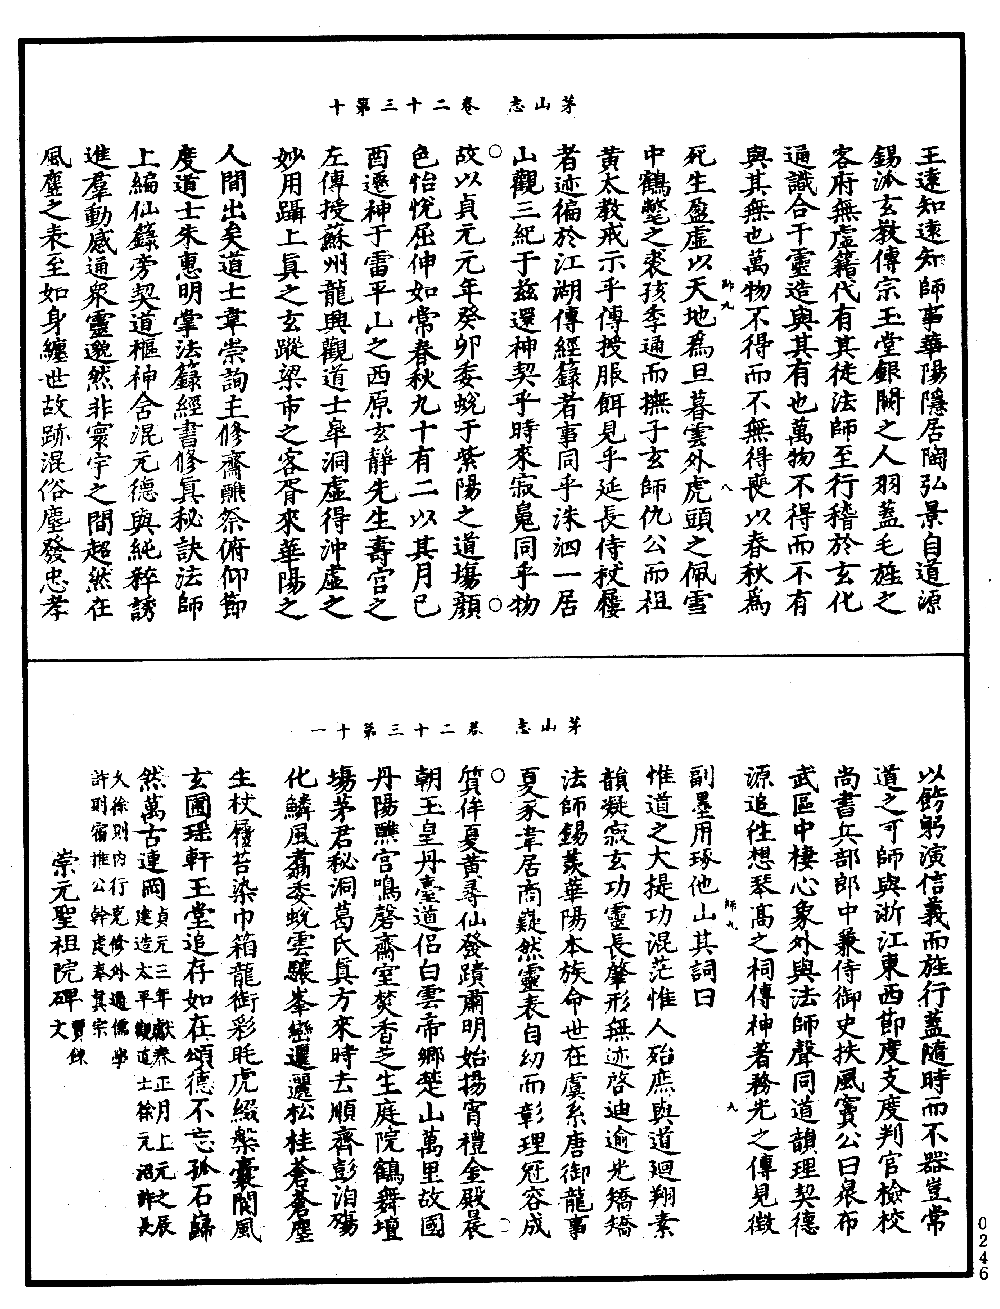 茅山志　卷二十三第十
王遠知遠知師事華陽隱居陶弘景自道源
錫派玄教傳宗玉堂銀闕之人羽蓋毛旌之
客府無虛籍代有其徒法師至行稽於玄化
遍識合于靈造與其有也萬物不得而不有
與其無也萬物不得而不無得喪以春秋爲
師九
八
死生盈虛以天地爲旦暮雲外虎頭之佩雪
中鶴氅之裘孩李通而撫于玄師仇公而祖
黃太教戒示乎傳授服餌見乎延長侍杖屨
者迹徧於江湖傳經籙者事同乎洙泗一居
山觀三紀于茲還神契乎時來寂鬼同乎物
故以貞元元年癸卯委蛻于紫陽之道場顏
色怡悅屈伸如常春秋九十有二以其月己
酉遷神于雷平山之西原玄靜先生壽宮之
左傳授蘇州龍興觀道士皐洞虛得沖虛之
妙用躡上眞之玄蹤梁市之客胥來華陽之
人間出矣道士韋崇詢主修齋醮祭俯仰節
度道士朱惠明掌法籙經書修眞秘訣法師
上編仙籙旁契道樞神舍混元德與純粹誘
進羣動感通衆靈邈然非寰宇之間超然在
風塵之表至如身纏世故跡混俗塵發忠孝
茅山志　卷二十三第十一
以飭躬演信義而旌行蓋隨時而不器豈常
道之可師與浙江東西節度支度判官檢校
尚書兵部郎中兼侍御史扶風竇公曰臮布
武區中棲心象外與法師聲同道韻理契德
源追性想琴高之祠傳神著務光之傳見徵
師九
九
副墨用琢他山其詞曰
惟道之大提功混茫惟人殆庶與道迴翔素
韻凝寂玄功靈長肇形無迹啓迪逾光矯矯
法師錫羨華陽本族命世在虞系唐御龍事
夏豕韋居商嶷然靈表自幼而彰理冠容成
質侔夏黃尋仙發蹟肅明始揚宵禮金殿晨
朝玉皇丹臺道侶白雲帝鄉楚山萬里故國
丹陽醮宮鳴磬齋室焚香芝生庭院鶴舞壇
場茅君秘洞葛氏眞方來時去順齊彭泊殤
化鱗風翥委蛻雲驤峯巒邐邐松桂蒼蒼塵
生杖屨苔染巾箱龍銜彩毦虎綴槃囊閬風
玄圃瑤軒玉堂追存如在頌德不忘孤石巋
然萬古連岡 貞元三年獻春正月上元之辰 建造太平觀道士徐元沼許長
久徐則內行克修外邊儒學
許則宿推公幹虔奉其宗
崇元聖祖院碑 賈餗文
0246